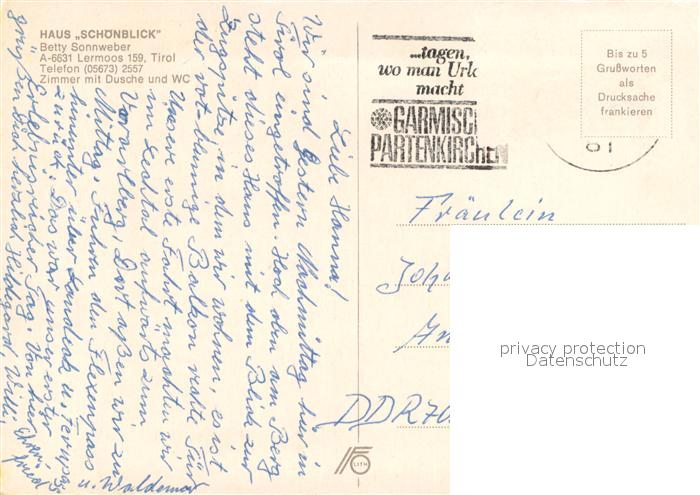 HAUS „SCHÖNBLICK"
Betty Sonnweber
A-6631 Lermoos 159, Tirol
Telefon (05673) 2557
Zimmer mit Dusche und WC
Liebe Hanna!
Wir sind gestern Nachmittag hier in
Tirol eingetroffen. Hoch oben am Berg
steht dieses Haus mit dem Blick zur
Zugspitze, in dem wir wohnen, es ist
Balkon rechte Tür
Unsere erste Fahrt machten wir
im Lechtal aufwärts zum
Vorarlberg. Dort aßen wir zu
Mittag. Fuhren den Flexenpass
hinunter über Landeck u. Fernpaß
zurück. Das war unser erster
erlebnisreicher Tag. Von hier
grüßen Dich herzlich Hildegard, Willi,
u. Waldemar
...tagen,
wo man Urk
macht
GARMISCH
PARTENKIRCHEN
01
Bis zu 5
Grußworten
als
Drucksache
frankieren
Fräulein
Joh
DDR 70
LITH
privacy protection
Datenschutz